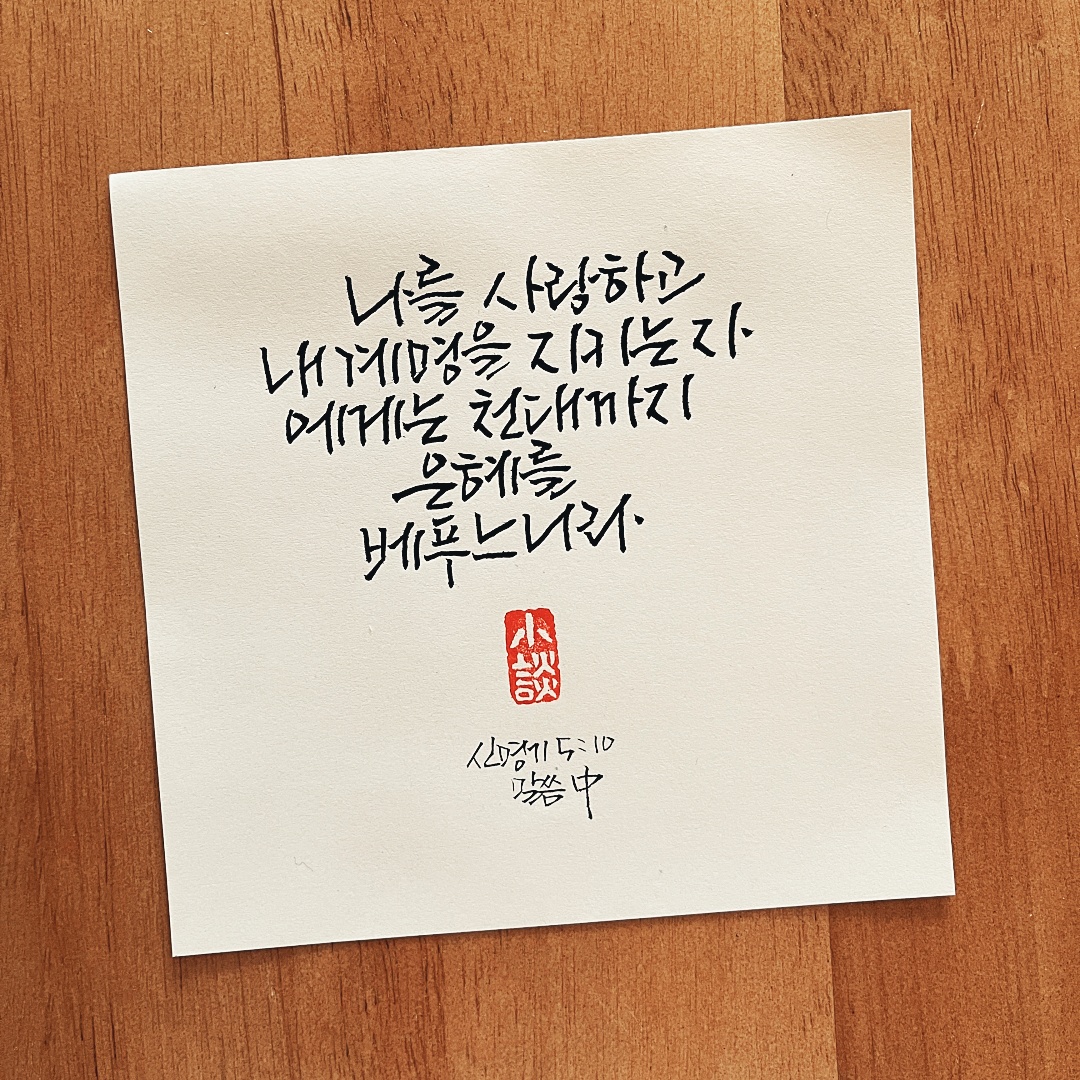 나를 사랑하고
내 계명을 지키는 자
에게는 천대까지
은혜를
베푸느니라.
小
談
신명기 5:10
말씀 中